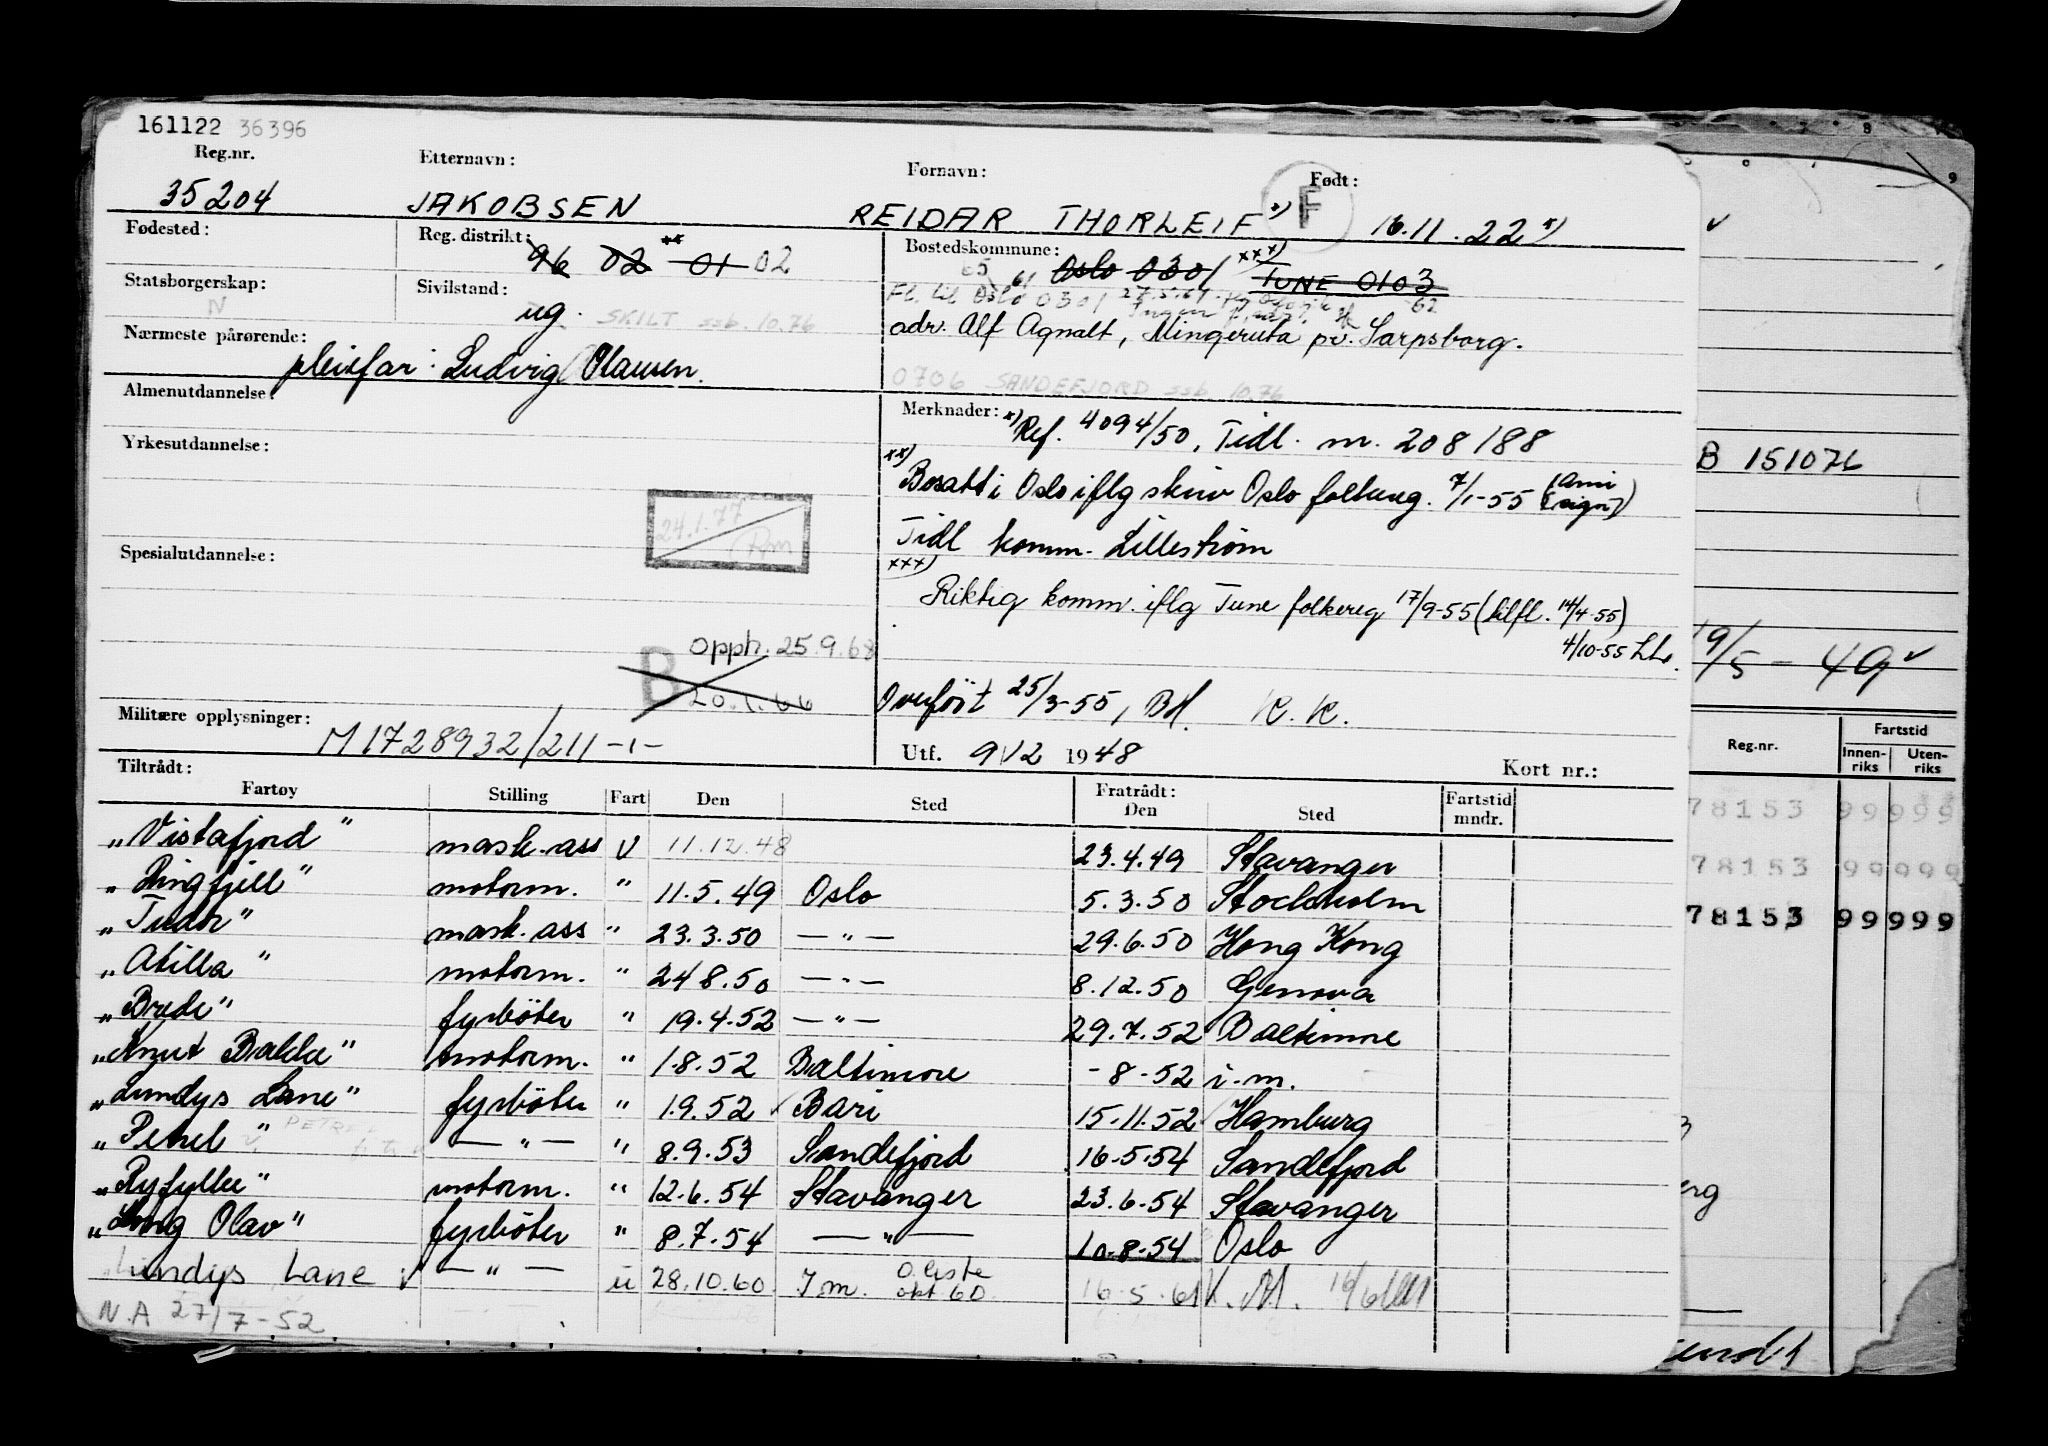 161122 36396
Reg.nr. Etternavn: Fornavn: Født:
35204 JAKOBSEN REIDAR THORLEIF x) F 16.11.22 x)
Fødested: Reg. distrikt: 96 02 xx 01 02 Bostedskommune: Oslo 0301 xxx) TUNE 0103
65 61
Statsborgerskap: N Sivilstand: ug. SKILT ssb. 10.76
Fl. til Oslo 0301 27.5.61 62
adr. Alf Agnalt, Mingeruta pr. Sarpsborg.
Nærmeste pårørende: pleiefar: Ludvig Olausen.
0706 SANDEFJORD ssb. 10.76
Almenutdannelse: Merknader: x) Ref. 4094/50, Tidl. m. 208188
Yrkesutdannelse: xx) Bosatt i Oslo iflg skriv Oslo folkereg. 7/1-55 (Ami sign)
24.1.77
Tidl komm. Lillestrøm
Spesialutdannelse: xxx) Riktig komm. iflg Tune folkereg 17/9-55 (tilfl. 14/4-55)
4/10-55
B opph. 25.9.68
20.1.66
Overført 25/3-55, K.K.
Militære opplysninger: M 1728932/211-1-
Utf. 9/12 1948 Kort nr.:
Tiltrådt: Fratrådt:
Fartøy Stilling Fart Den Sted Den Sted Fartstid mndr.
„Vistafjord" mask.ass v 11.12.48 23.4.49 Stavanger
„Ringfjell" motorm. " 11.5.49 Oslo 5.3.50 Stockholm
„Tudor" mask.ass " 23.3.50 — " — 29.6.50 Hong Kong
„Atilla" motorm. " 24 8.50 — " — 8.12.50 Genova
„Brede" fyrbøter " 19.4.52 — " — 29.7.52 Baltimore
„Knut Bakke" motorm. " 1.8.52 Baltimore - 8 -52 i.m.
„Lundys Lane" fyrbøter " 1.9.52 Bari 15.11.52 Hamburg
„Petrel" PETREL — " — " 8.9.53 Sandefjord 16.5.54 Sandefjord
„Ryfylke" motorm. " 12.6.54 Stavanger 23.6.54 Stavanger
„Kong Olav" fyrbøter " 8.7.54 — " — 10.8.54 Oslo
Lundys Lane v — " — u 28.10.60 I m. O.liste okt 60. 16.5.61
N.A 27/7-52
B 151076
19/5 - 49
Reg.nr. Fartstid
Innenriks Utenriks
78153 99999
78153 99999
78153 99999